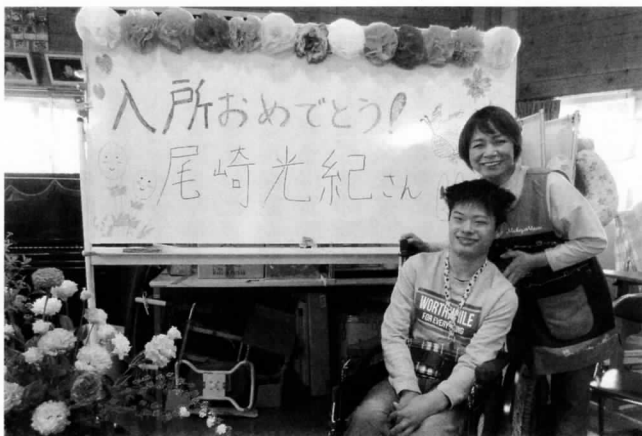 入所おめでとう!
尾崎光紀さん
WORTHWHILE
FOR EVERYTHING